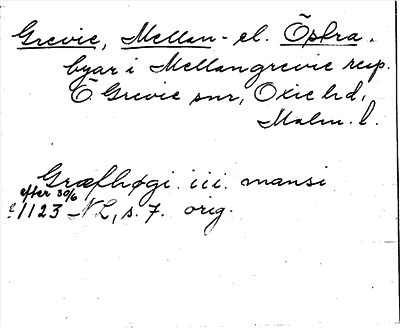 Grevie, Mellan- el. Östra.
byar i Mellangrevie resp.
Ö Grevie snr, Oxie hd,
Malm. l.
Græfhøgi. iii. mansi
efter 30/6
1123 - NL, s. 7. orig.